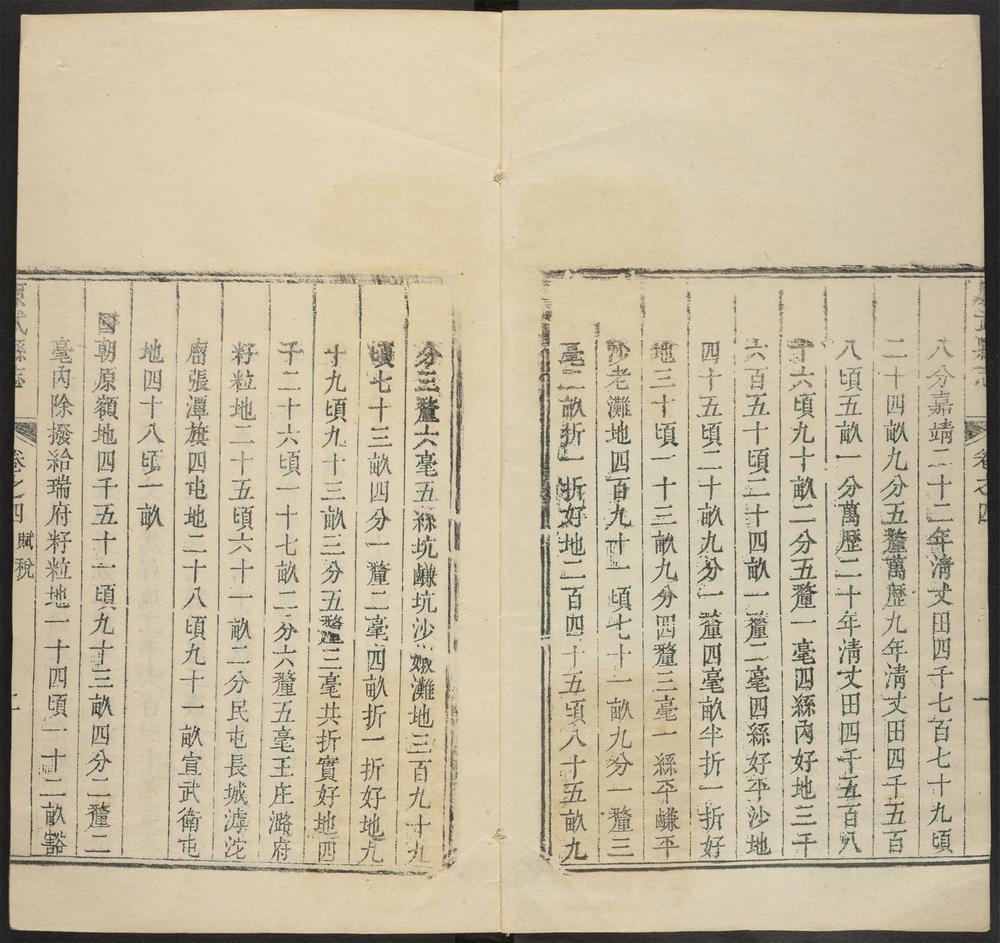 八分嘉靖二十二年清丈田四千七百七十九頃
二十四畝九分五釐萬歷九年清丈田四千五百
八頃五畝一分萬歷二十年清丈田四千五百八
十六頃九十畝二分五釐一毫四絲內好地三千
六百五十頃二十四畝一釐二毫四絲好平沙地
四十五頃二十畝九分一釐四毫畝半折一折好
地三十頃一十三畝九分四釐三毫一絲平鹻平
沙老灘地四百九十一頃七十一畝九分一釐三
毫二畝折一折好地二百四十五頃八十五畝九
分三釐六毫五絲坑鹻坑沙嫩灘地三百九十九
頃七十三畝四分一釐二毫四畝折一折好地九
十九頃九十三畝三分五釐三毫共折實好地四
千二十六頃一十七畝二分六釐五毫王庄潞府
籽粒地二十五頃六十一畝二分民屯長城滹沱
廇張潭旗四屯地二十八頃九十一畝宣武衛屯
地四十八頃一畝
朝原額地四千五十一頃九十三畝四分二釐二
毫內除撥給瑞府籽粒地一十四頃一十二畝豁
原武縣志
卷之四 賦稅